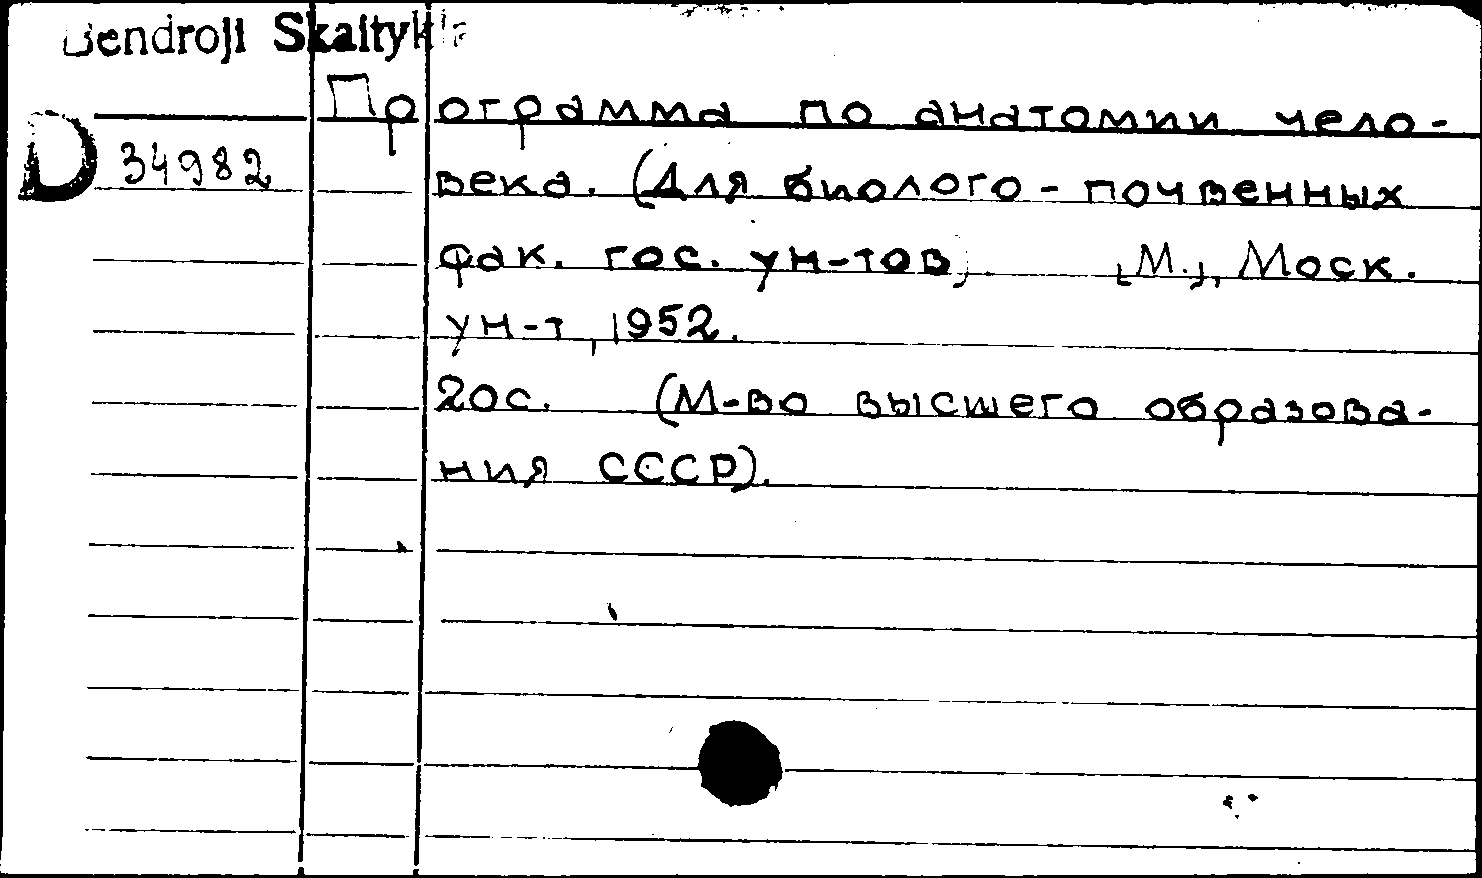 Bendroji Skaitykla
Программа по анатомии чело-
D 34982 века. (Для биолого-почвенных
фак. гос. ун-тов). [М.], Моск.
ун-т, 1952.
20с. (М-во высшего образова-
ния СССР).